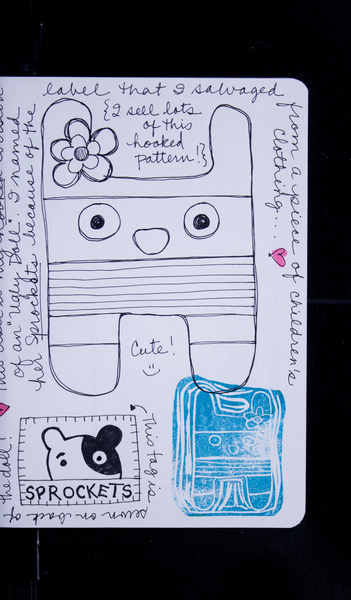 label that I salvaged
from a piece of children's
clothing...
{I sell lots
of this
hooked
pattern!}
of an "Ugly Doll". I named
her Sprockets because of the
Cute!
This tag is
sewn on back of
the doll!
SPROCKETS